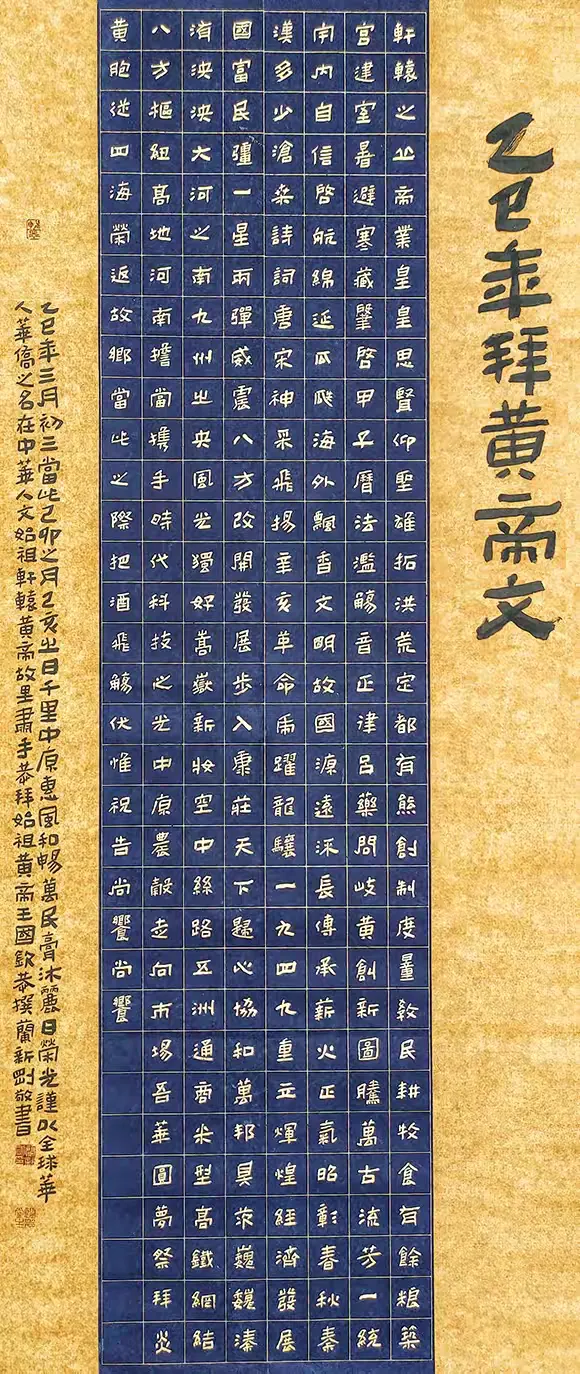 乙巳年拜黄帝文
軒轅之丘帝業皇皇思賢仰聖雄拓洪荒定都有熊創制度量教民耕牧食有餘粮築
宫建室暑避寒藏肇啓甲子曆法濫觴音正律吕藥問岐黄創新圖騰萬古流芳一統
宇内自信啓航綿延瓜瓞海外飄香文明故國源遠流長傳承薪火正氣昭彰春秋秦
漢多少滄桑詩詞唐宋神采飛揚辛亥革命虎躍龍驤一九四九重立輝煌經濟發展
國富民彊一星兩彈威震八方改開發展步入康莊天下歸心協和萬邦具茨巍巍溱
洧泱泱大河之南九州之央風光獨好嵩嶽新妝空中絲路五洲通商米型高鐵網結
八方樞紐高地河南擔當攜手時代科技之光中原農穀走向市場吾華圓夢祭拜炎
黄胞從四海榮返故鄉當此之際把酒飛觴伏惟祝告尚饗尚饗
乙巳年三月初三當此己卯之月乙亥之日千里中原惠風和暢萬民膏沐麗日榮光謹以全球華
人華僑之名在中華人文始祖軒轅黄帝故里肅手恭拜始祖黄帝王國欽恭撰蘭新剛敬書